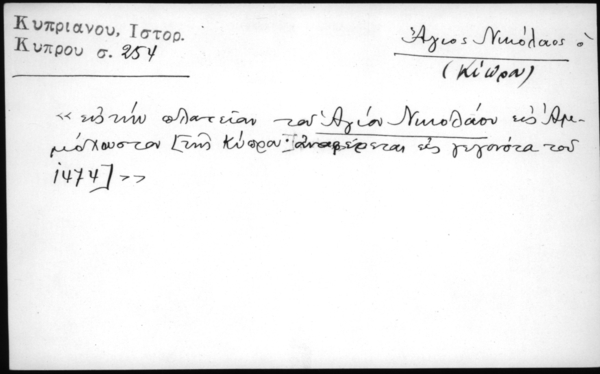 Κυπριανου, Ιστορ.
Κυπρου σ. 254
Ἅγιος Νικόλαος ὁ
(Κύπρου)
« εἰς τὴν πλατεῖαν τοῦ Ἁγίου Νικολάου εἰς Ἀμ-
μόχουστον [τῆς Κύπρου· ἀναφέρεται εἰς γεγονότα τοῦ
1474] »